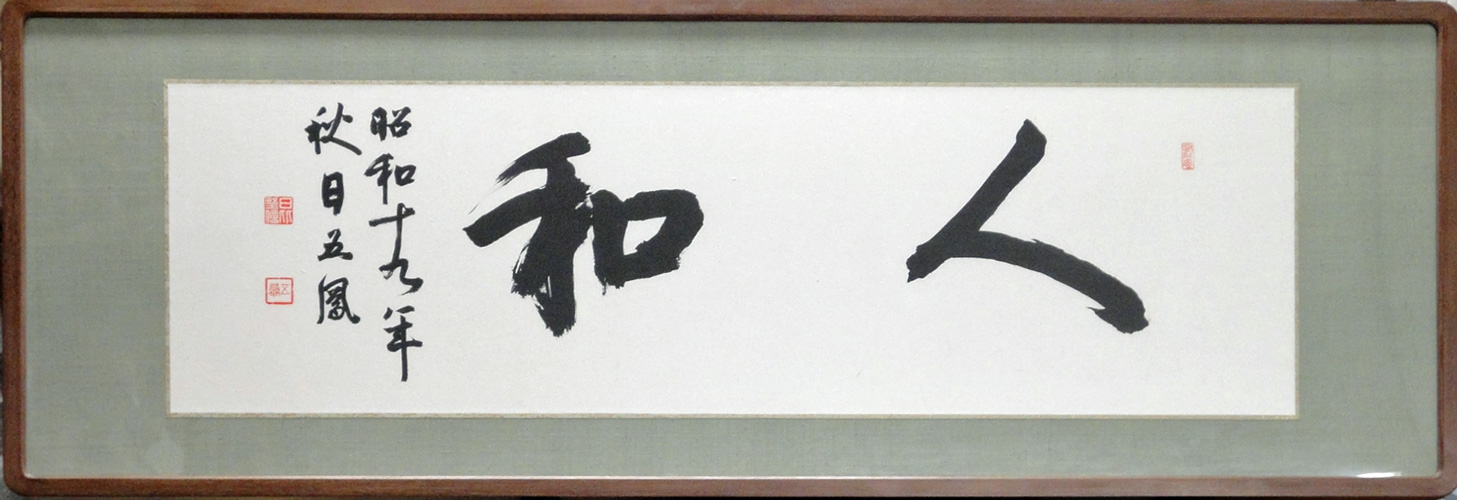 人和
昭和十九年
秋日五鳳